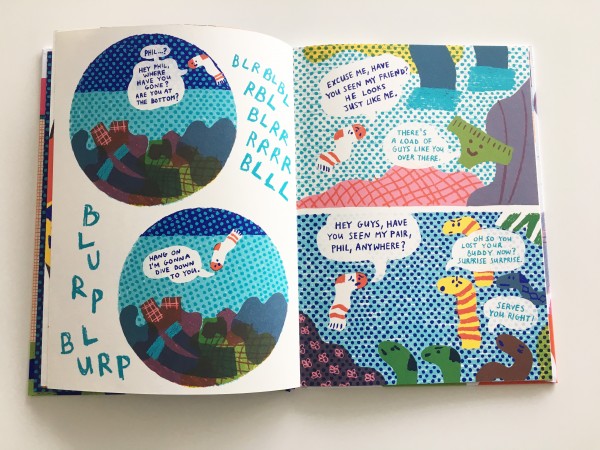 PHIL...?
HEY PHIL,
WHERE
HAVE YOU
GONE?
ARE YOU AT
THE BOTTOM?
BLRBLBL
RBL
BLRR
RRRR
BLLL
HANG ON
I'M GONNA
DIVE DOWN
TO YOU.
BLURP
BLURP
EXCUSE ME, HAVE
YOU SEEN MY FRIEND?
HE LOOKS
JUST LIKE ME.
THERE'S
A LOAD OF
GUYS LIKE YOU
OVER THERE.
HEY GUYS, HAVE
YOU SEEN MY PAIR,
PHIL, ANYWHERE?
OH SO YOU
LOST YOUR
BUDDY NOW?
SURPRISE SURPRISE.
SERVES
YOU RIGHT!